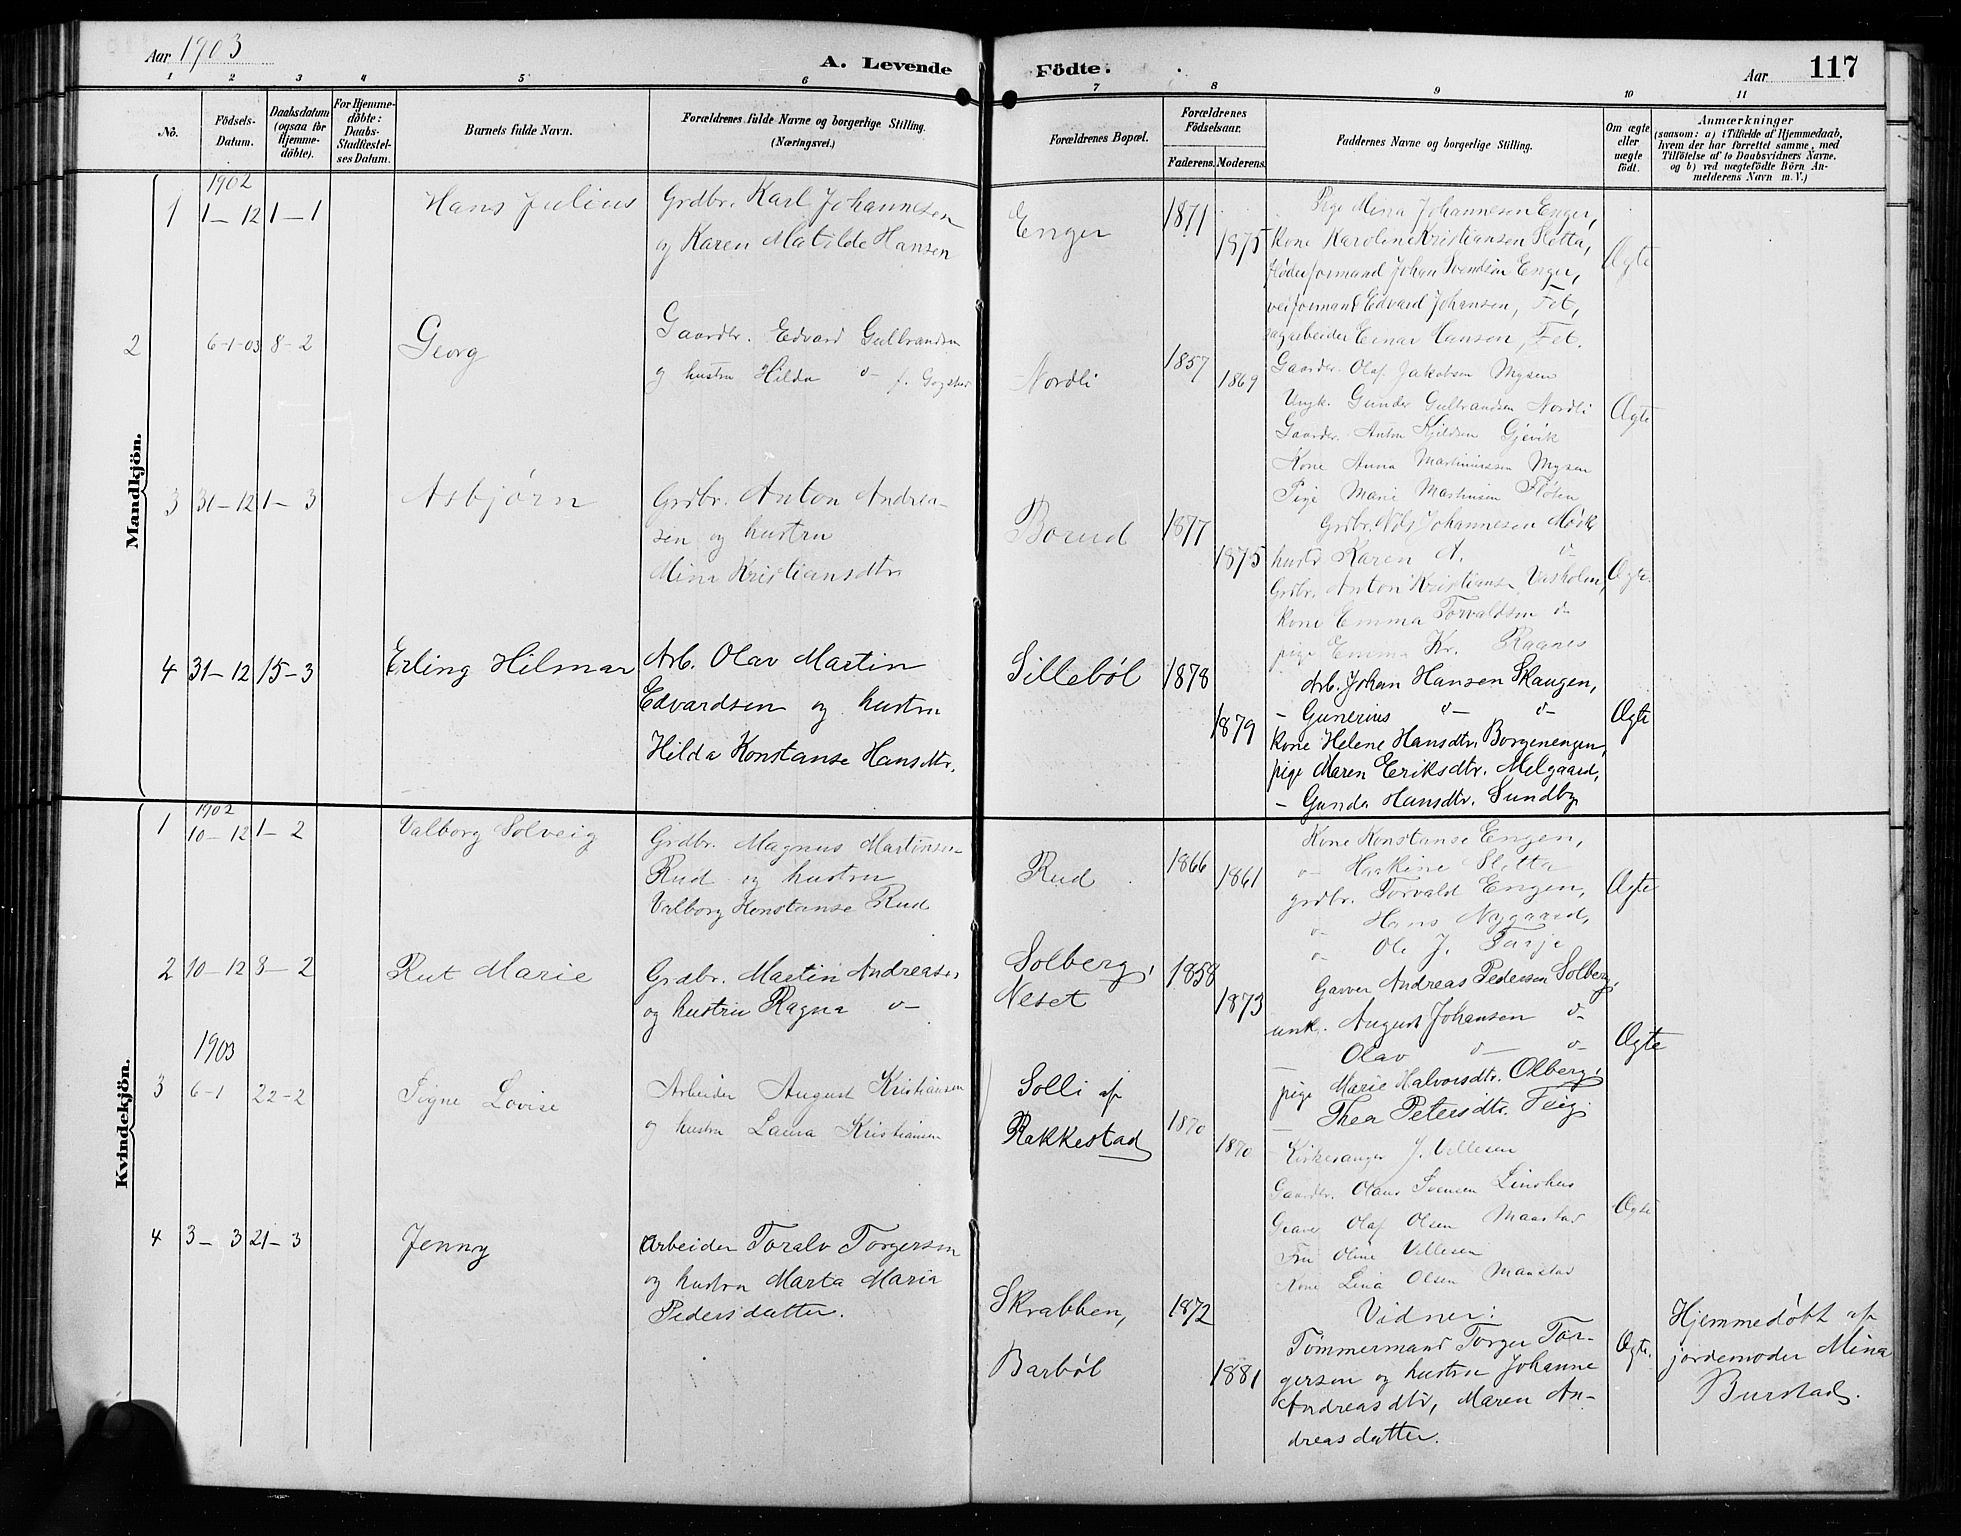 Aar 1903
A. Levende Fødte.
Aar
117
1 2 3 4 5 6 7 8 9 10 11
No.
Födsels-Datum.
Daabsdatum (ogsaa for Hjemme-døbte).
For Hjemme-døbte: Daabs-Stadfæstel-ses Datum.
Barnets fulde Navn.
Forældrenes fulde Navne og borgerlige Stilling.
(Næringsvei.)
Forældrenes Bopæl.
Forældrenes Födselsaar.
Faderens. Moderens.
Faddernes Navne og borgerlige Stilling.
Om ægte eller uægte født.
Anmærkninger
(saasom: a) i Tilfælde af Hjemmedaab,
hvem der har forrettet samme, med
Tilföielse af to Daabsvidners Navne.
og b) ved uægtefödte Börn An-
melderens Navn m. V.)
Mandkjön.
1902
1 1–12 1–1 Hans Julius
Grdbr. Karl Johannesen
og Karen Matilde Hansen
Enger
1871
1875
Pige Mina Johannesen Enger,
Kone Karoline Kristiansen Sletta,
fløderformand Johan Svendsen Enger,
veiformand Edvard Johansen, Fet,
sagarbeider Einar Hansen, Fet.
Ægte
2 6–1–03 8–2 Georg
Gaardbr. Edvard Gulbrandsen
og hustru Hilda d– f.
Nordli
1857
1869
Gaardbr. Olaf Jakobsen Mysen
Ungk. Gunder Gulbrandsen Nordli
Gaardbr. Anton Kjildsen Gjevik
Kone Anna Martinussen Mysen
Pige Marie Martinsen Fløten
Ægte
3 31–12 1–3 Asbjørn
Grdbr. Anton Andrea-
sen og hustru
Mina Kristiansdtr.
Borud
1877
1875
Grdbr. Nils Johannesen Mørk
hustr Karen A. d–
Grdbr. Anton Kristianse
kone Emma Torvaldsen d–
pige Emma Kr. Ragnes
Ægte.
4 31–12 15–3 Erling Hilmar
Arb. Olav Martin
Edvardsen og hustru
Hilda Konstanse Hansdtr.
Sillebøl
1878
1879
Arb. Johan Hansen Skaugen,
– Gunerius d– d–
kone Helene Hansdtr. Borgenengen,
pige Maren Eriksdtr. Melgaard,
– Gunda Hansdtr. Sundby
Ægte
Kvindekjön.
1902
1 10–12 1–2 Valborg Solveig
Grdbr. Magnus Martinsen
Rud og hustru
Valborg Konstanse Rud
Rud
1866
1861
Kone Konstanse Engen,
d– Haakine Sletta
grdbr. Torvald Engen,
d– Hans Nygaard,
d– Ole J. Tarje
Ægte
2 10–12 8–2 Rut Marie
Grdbr. Martin Andreasen
og hustru Ragna d–
Solberg,
Neset
1858
1873
Garver Andreas Pedersen Solberg,
unk. August Johansen d–
– Olav d– d–
pige Marie Halvorsdtr. Olberg,
– Thea Petersdtr. Teig.
Ægte
1903
3 6–1 22–2 Signe Lovise
Arbeider August Kristiansen
og hustru Laura Kristiansen
Solli af
Rakkestad
1870
1870
Kirkesanger J. Villesen
Gaardbr. Olaus Svensen Linshus
Graver Olaf Olsen Maastad
Fru Oline Villesen
Kone Lina Olsen Maastad
Ægte
4 3–3 21–3 Jenny
Arbeider Toralv Torgersen
og hustru Marta Maria
Pedersdatter.
Skrabben,
Barbøl
1872
1881
Vidner:
Tømmermand Torger Tor-
gersen og hustru Johanne
Andreasdtr, Maren An-
dreasdatter.
Ægte.
Hjemmedøbt af
jordemoder Mina
Burstad.